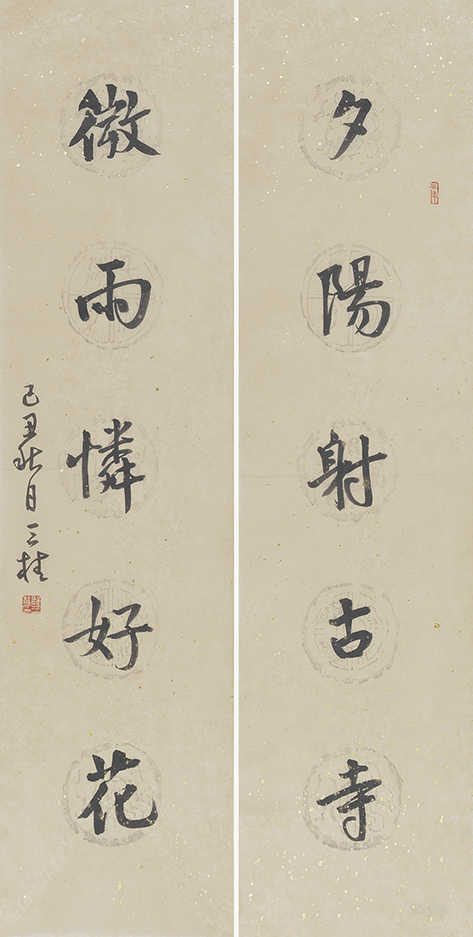 夕陽射古寺
微雨憐好花
己丑秋月三桂